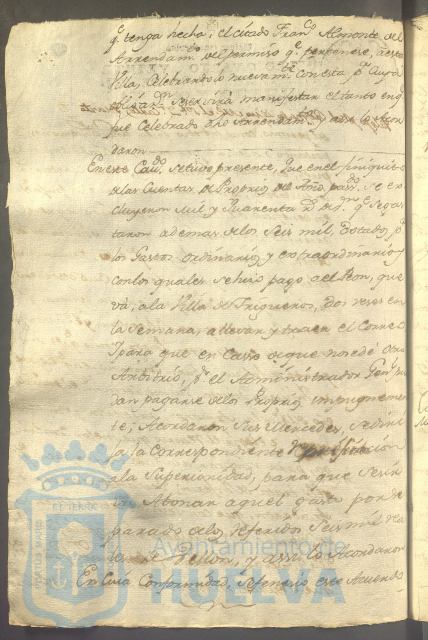 q.e tenga hecha; el citado Fran.co Almonte del
Arrendam.to del permiso q.e pertenese, a esta
Villa, Celebrandolo nuevam.te con esta p.r cuya
se servirá manifestar el tanto en q.
fue Celebrado dho Arrendam.to y assi lo Acor
daron
En este Cav.do se tuvo presente, que en el finiquito
de las Cuentas de Proprios del Año pass.do se ex
cluyeron mil y quarenta r.s de v.n q.e se gas
taron ademas de los Seis mil, dotados p.a
los Gastos ordinarios, y extraordinarios
con los quales se hizo pago a el Peon, que
vá, a la Villa de Trigueros, dos veses en
la semana, a llevar y traer el Correo
Y para que en Caso de que no se dé otro
Arbitrio, p.r el Administrador Gen.l pu
dan pagarse de los Proprios impugnemen
te; Acordaron Sus Mercedes, se dirija
la Correspondiente Representacion
a la Superioridad, para que se sir
va Abonar aquel gasto por se
parado de los referidos Seis mil rea
les de Vellon, y assi lo Acordaron
En Cuia Conformidad, se fenecio este Acuerdo
Ayuntamiento de
HUELVA